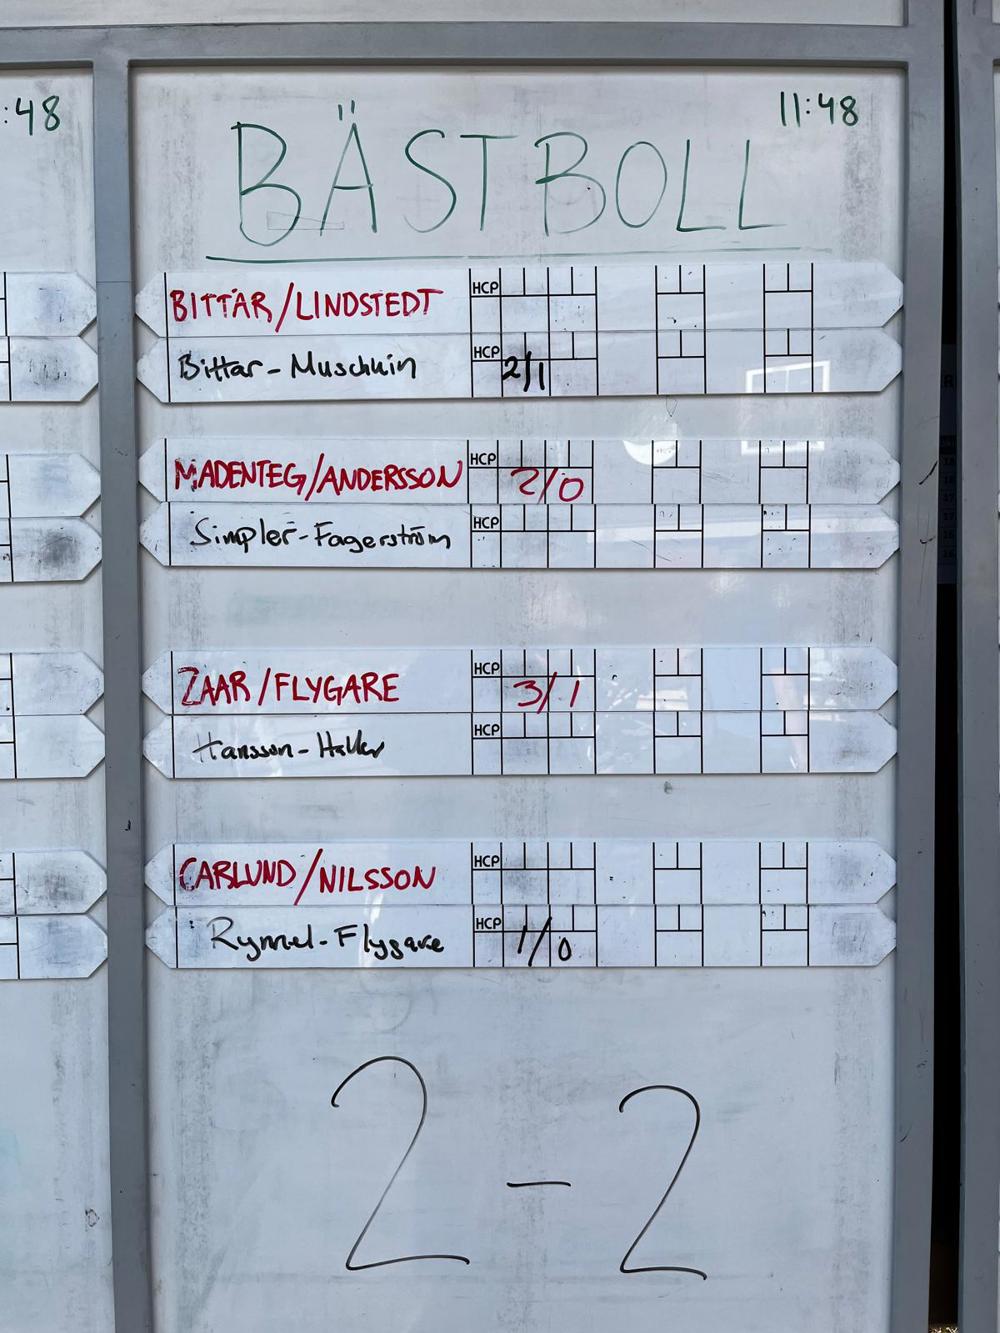 :48
11:48
BÄSTBOLL
BITTÄR/LINDSTEDT HCP
Bittar-Muschuin HCP 2/1
MADENTEG/ANDERSSON HCP 2/0
Simpler-Fagerström HCP
ZAAR/FLYGARE HCP 3/1
Hansson-Haller HCP
CARLUND/NILSSON HCP
Rymel-Flygare HCP 1/0
2-2